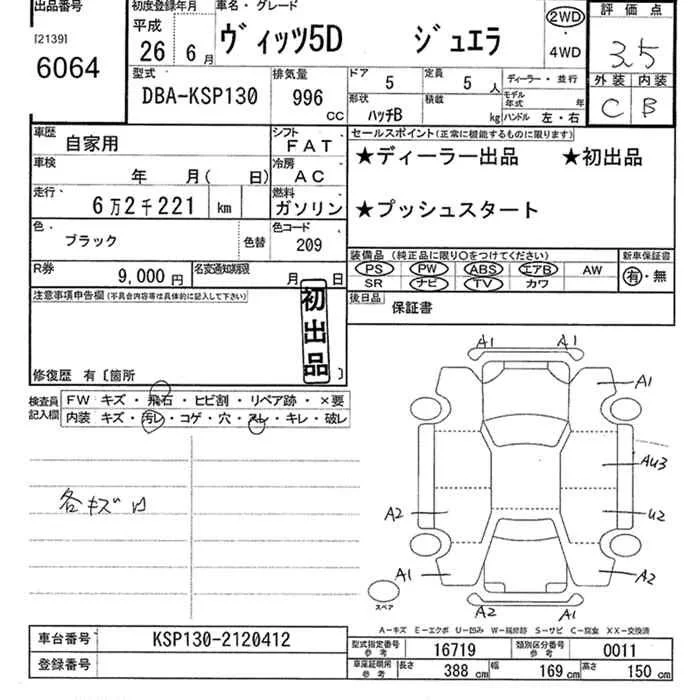 出品番号
[2139]
6064
初度登録年月
平成
26年 6月
車名・グレード
ヴィッツ5D ジュエラ
2WD
・
4WD
評価点
3.5
外装 内装
C B
型式
DBA-KSP130
排気量
996
CC
ドア 5
定員 5 人
ディーラー・並行
モデル年式 年
形状 ハッチB
積載 kg
ハンドル 左・右
車歴 自家用
シフト FAT
車検 年 月( 日)
冷房 AC
走行 6万2千221 km
燃料 ガソリン
色 ブラック 色替
色コード 209
R券 9,000円
名変通知期限 月 日
セールスポイント(正常に機能するものに限ります)
★ディーラー出品 ★初出品
★プッシュスタート
装備品 (純正品に限り○をつけてください)
PS PW ABS エアB AW
SR ナビ TV カワ
新車保証書
有・無
後日品 保証書
注意事項申告欄(不具合内容等は具体的に記入して下さい)
初出品
修復歴 有〔箇所 〕
検査員記入欄
FW キズ・飛石・ヒビ割・リペア跡・×要
内装 キズ・汚レ・コゲ・穴・スレ・キレ・破レ
各キズ凹
A1 A1
A1
AU3
A2 U2
A1 A2
A2 A1
スペア
A-キズ E-エクボ U-凹み W-補修跡 S-サビ C-腐食 XX-交換済
車台番号 KSP130-2120412
登録番号
型式指定番号 参考 16719
類別区分番号 参考 0011
車庫証明用 参考 長さ 388 cm 幅 169 cm 高さ 150 cm